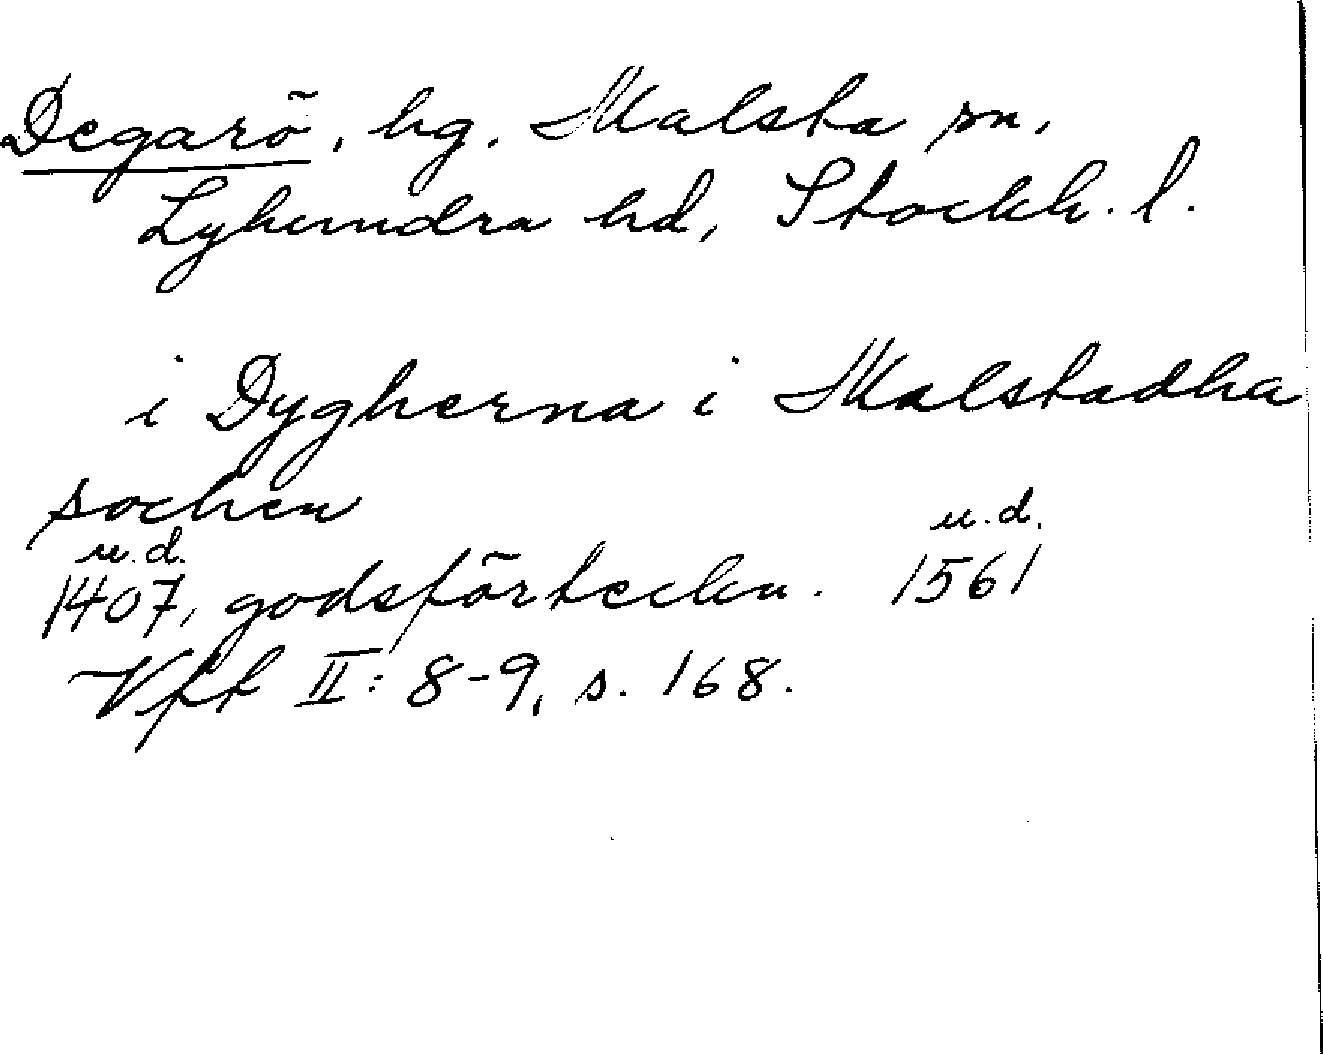 Degarö, hg. Malsta sn,
Lyhundra hd, Stockh. l.
i Dygherna i Malstadha
sochen
u.d. u.d.
1407, godsförteckn. 1561
Vff II: 8-9, s. 168.